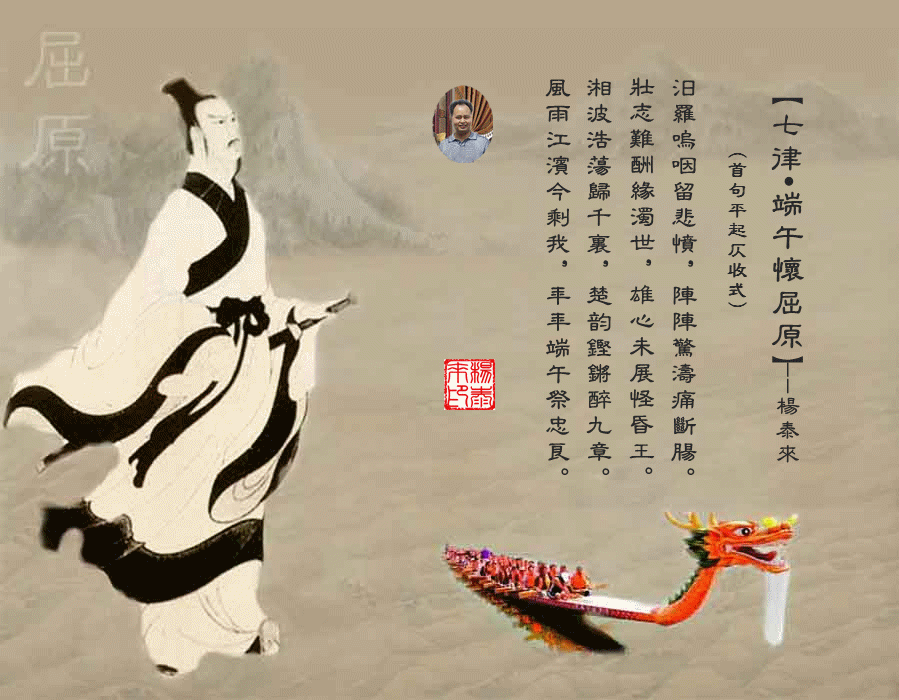 【七律•端午懷屈原】——楊泰來
（首句平起仄收式）
汨羅嗚咽留悲憤，陣陣驚濤痛斷腸。
壯志難酬緣濁世，雄心未展怪昏王。
湘波浩蕩歸千裏，楚韵鏗鏘醉九章。
風雨江濱今剩我，年年端午祭忠良。
楊泰來印
屈原